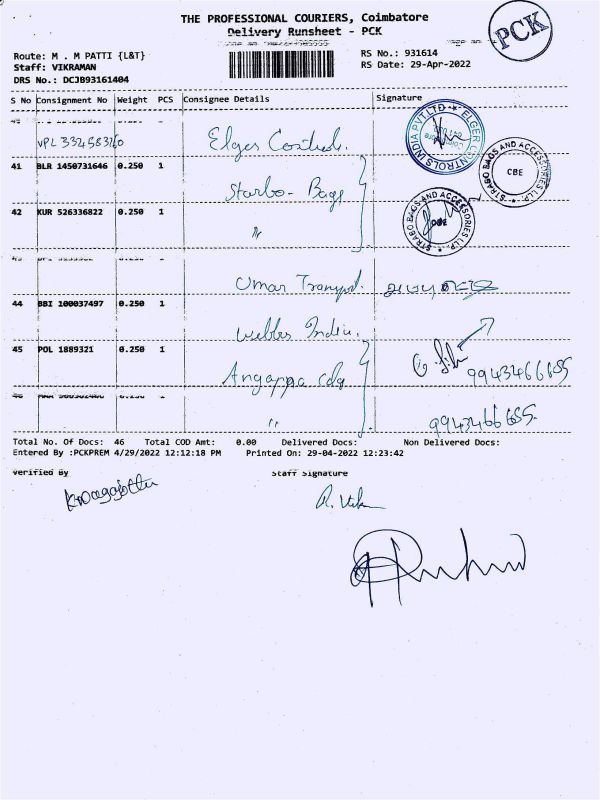 THE PROFESSIONAL COURIERS, Coimbatore
Delivery Runsheet - PCK
PCK
Route: M . M PATTI {L&T}
Staff: VIKRAMAN
DRS No.: DCJB93161404
RS No.: 931614
RS Date: 29-Apr-2022
S No Consignment No Weight PCS Consignee Details Signature
VPL 3324583760 Elger Controls.
ELGER CONTROLS INDIA PVT LTD
41 BLR 1450731646 0.250 1 Starbo - Bags
STRABO BAGS AND ACCESSORIES LLP. CBE
42 KUR 526336822 0.250 1 "
STRABO BAGS AND ACCESSORIES LLP. CBE
Umar Transport
44 BBI 100037497 0.250 1 Webber India.
45 POL 1889321 0.250 1 Angappa clg 9943466685
" 9943466685
Total No. Of Docs: 46 Total COD Amt: 0.00 Delivered Docs: Non Delivered Docs:
Entered By :PCKPREM 4/29/2022 12:12:18 PM Printed On: 29-04-2022 12:23:42
Verified By Staff Signature